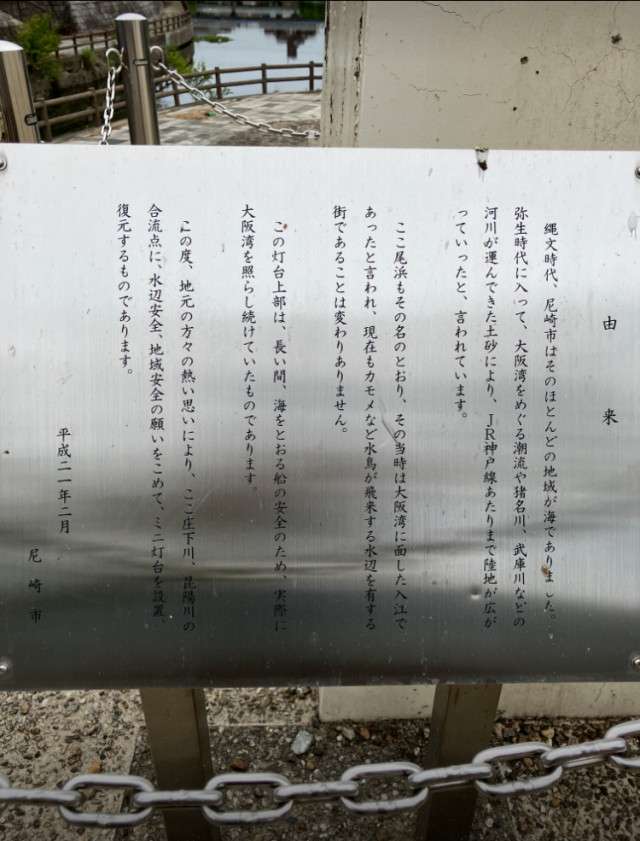 由来
縄文時代、尼崎市はそのほとんどの地域が海でありました。
弥生時代に入って、大阪湾をめぐる潮流や猪名川、武庫川などの
河川が運んできた土砂により、JR神戸線あたりまで陸地が広が
っていったと、言われています。
ここ尾浜もその名のとおり、その当時は大阪湾に面した入江で
あったと言われ、現在もカモメなど水鳥が飛来する水辺を有する
街であることは変わりありません。
この灯台上部は、長い間、海をとおる船の安全のため、実際に
大阪湾を照らし続けていたものであります。
この度、地元の方々の熱い思いにより、ここ庄下川、昆陽川の
合流点に、水辺安全、地域安全の願いをこめて、ミニ灯台を設置、
復元するものであります。
平成二一年二月
尼崎市